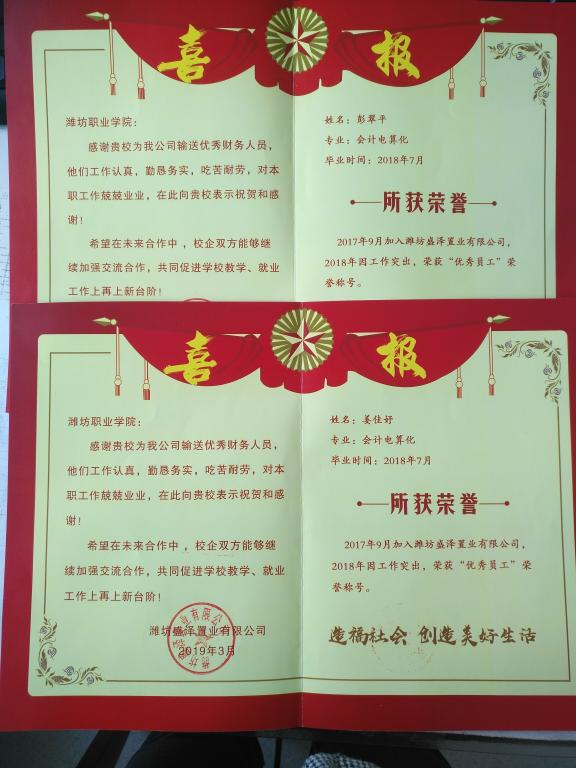 喜报
潍坊职业学院：
感谢贵校为我公司输送优秀财务人员，
他们工作认真，勤恳务实，吃苦耐劳，对本
职工作兢兢业业，在此向贵校表示祝贺和感
谢！
希望在未来合作中，校企双方能够继
续加强交流合作，共同促进学校教学、就业
工作上再上新台阶！
姓名：彭翠平
专业：会计电算化
毕业时间：2018年7月
所获荣誉
2017年9月加入潍坊盛泽置业有限公司，
2018年因工作突出，荣获“优秀员工”荣
誉称号。
喜报
潍坊职业学院：
感谢贵校为我公司输送优秀财务人员，
他们工作认真，勤恳务实，吃苦耐劳，对本
职工作兢兢业业，在此向贵校表示祝贺和感
谢！
希望在未来合作中，校企双方能够继
续加强交流合作，共同促进学校教学、就业
工作上再上新台阶！
潍坊盛泽置业有限公司
2019年3月
姓名：姜佳妤
专业：会计电算化
毕业时间：2018年7月
所获荣誉
2017年9月加入潍坊盛泽置业有限公司，
2018年因工作突出，荣获“优秀员工”荣
誉称号。
造福社会 创造美好生活